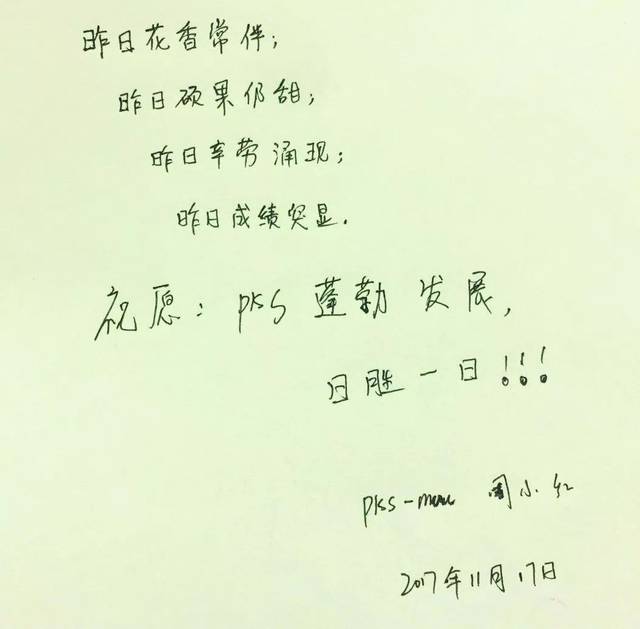 昨日花香常伴;
昨日硕果仍甜;
昨日辛劳涌现;
昨日成绩突显.
祝愿: pKS 蓬勃 发展,
日胜一日!!!
pKS- 周小红
2017年11月17日